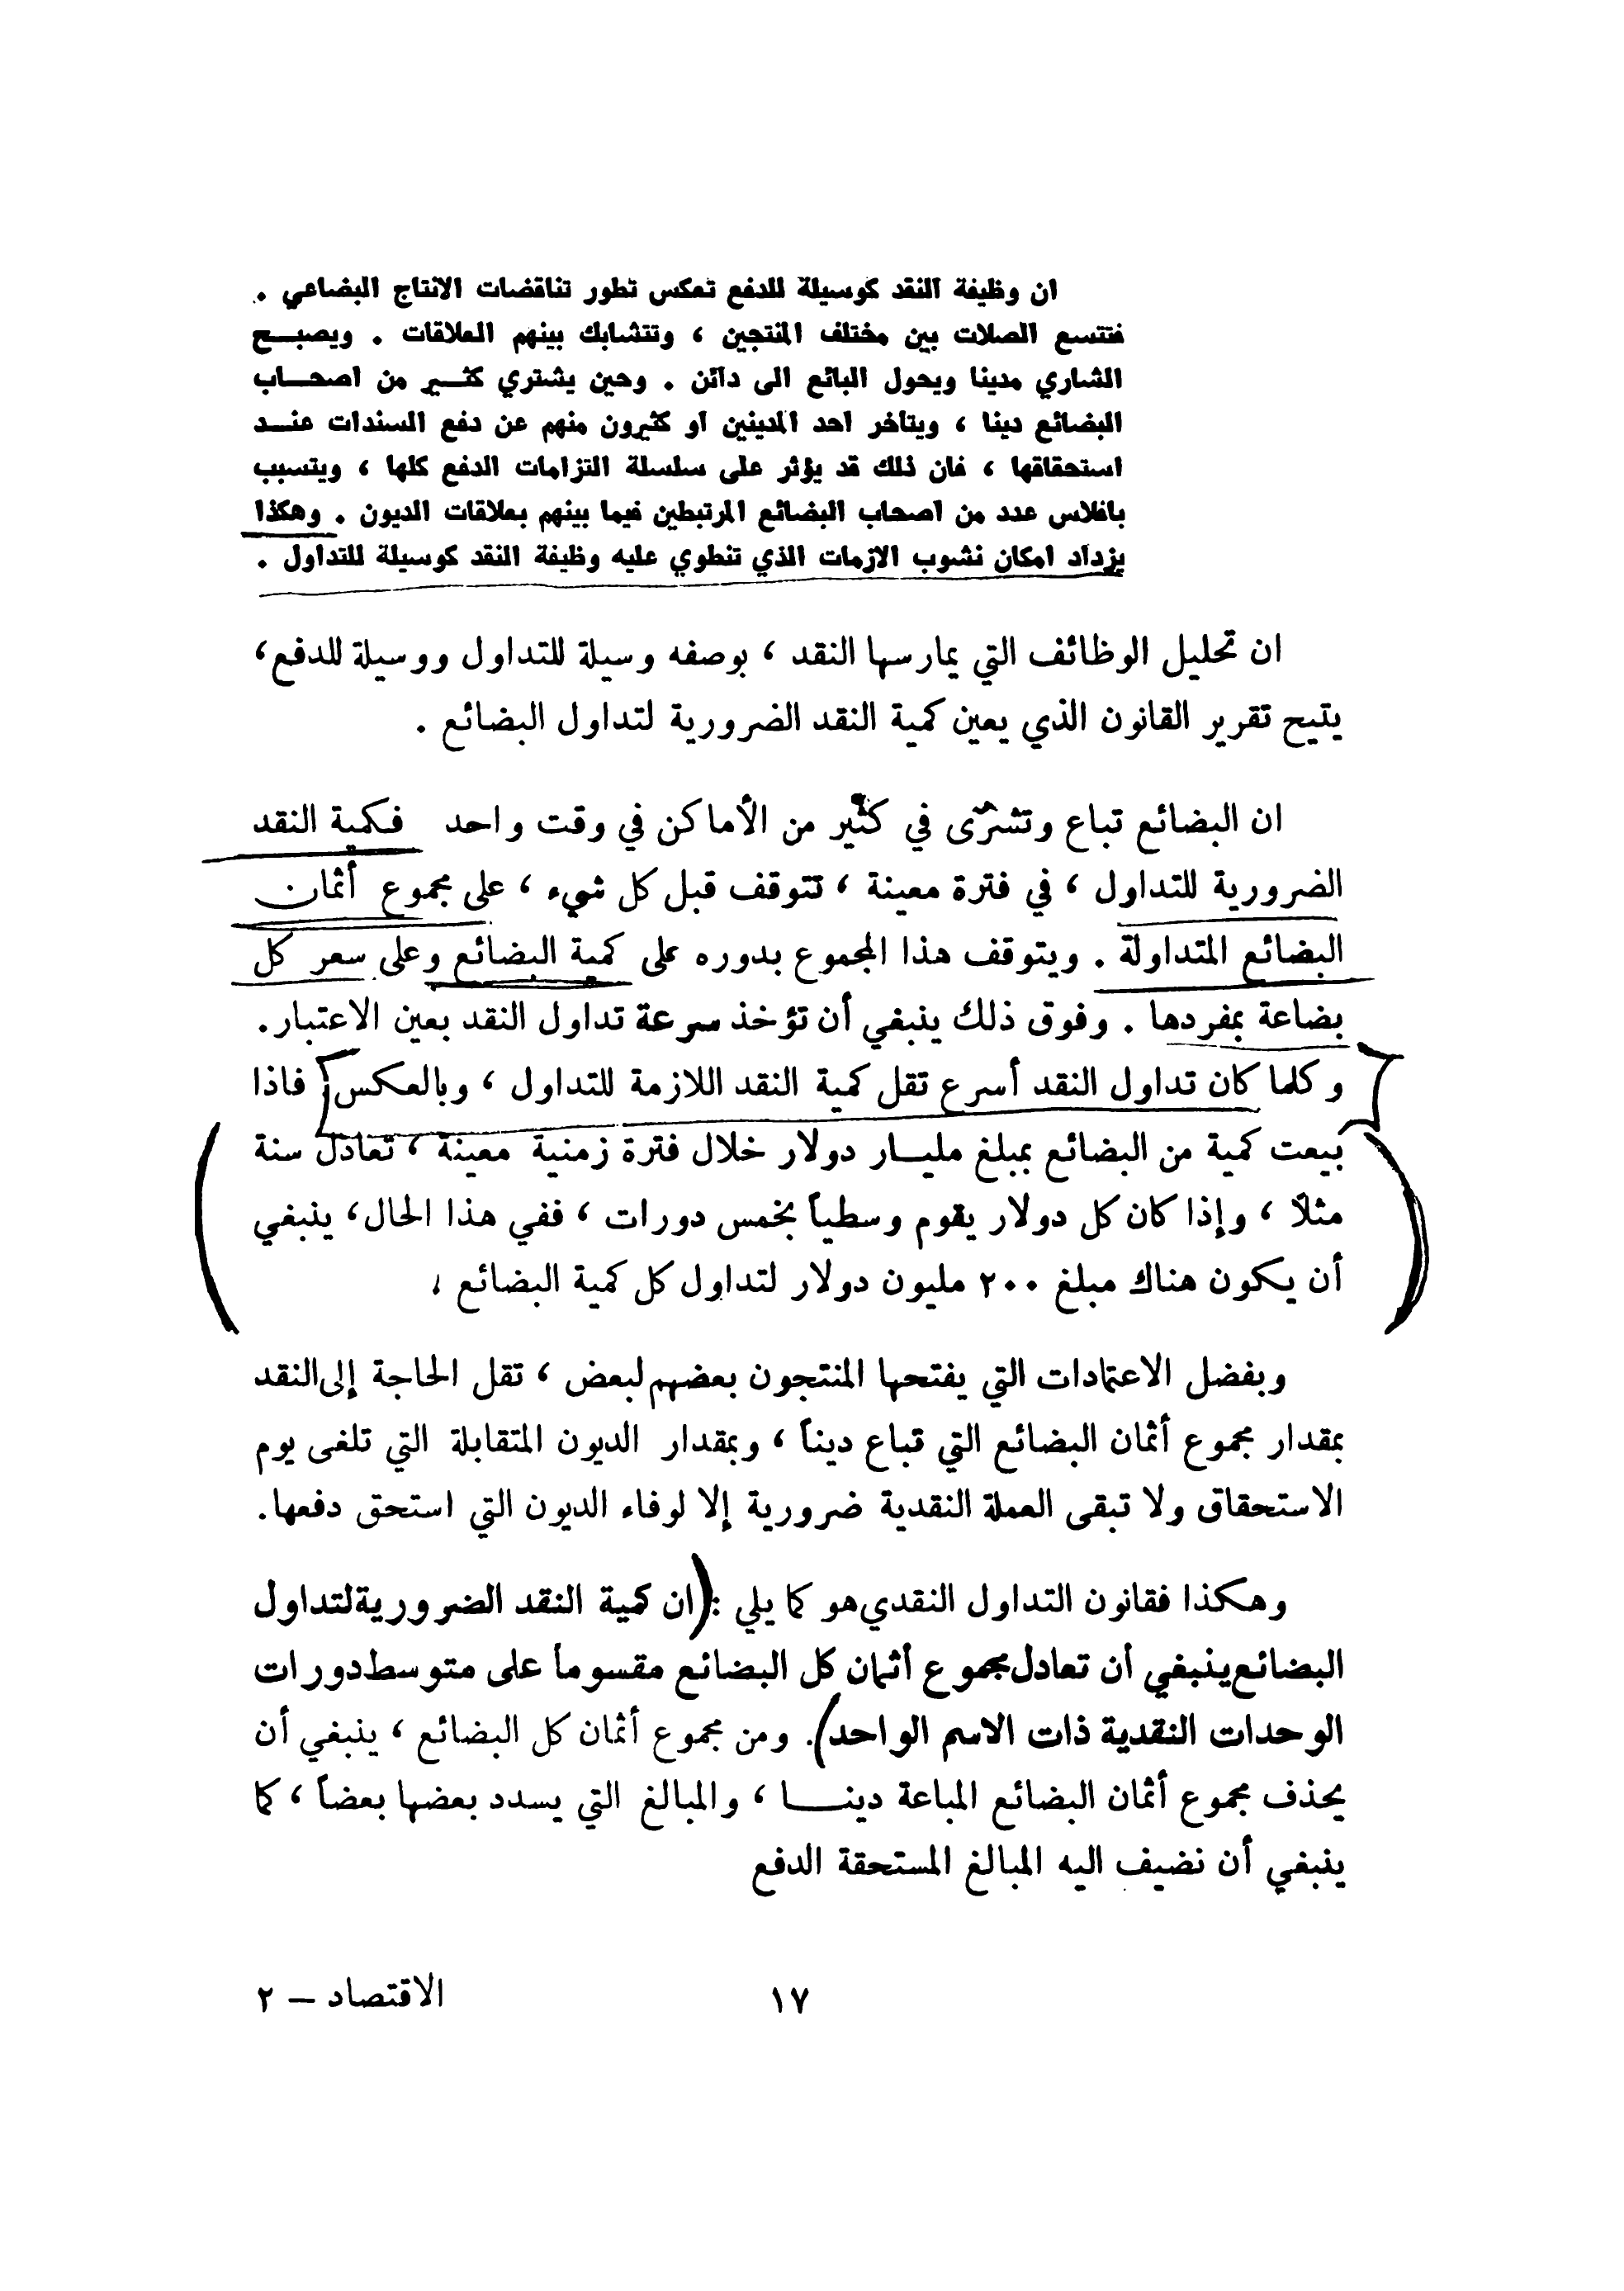 ان وظيفة النقد كوسيلة للدفع تعكس تطور تناقضات الانتاج البضاعي .
فتتسع الصلات بين مختلف المنتجين ، وتتشابك بينهم العلاقات . ويصبـــح
الشاري مدينا ويحول البائع الى دائن . وحين يشتري كثـــير من اصحـــاب
البضائع دينا ، ويتاخر احد المدينين او كثيرون منهم عن دفع السندات عنـــد
استحقاقها ، فان ذلك قد يؤثر على سلسلة التزامات الدفع كلها ، ويتسبب
بافلاس عدد من اصحاب البضائع المرتبطين فيما بينهم بعلاقات الديون . وهكذا
يزداد امكان نشوب الازمات الذي تنطوي عليه وظيفة النقد كوسيلة للتداول .
ان تحليل الوظائف التي يمارسها النقد ، بوصفه وسيلة للتداول ووسيلة للدفع ،
يتيح تقرير القانون الذي يعين كمية النقد الضرورية لتداول البضائع .
ان البضائع تباع وتشرى في كثير من الأماكن في وقت واحد فكمية النقد
الضرورية للتداول ، في فترة معينة ، تتوقف قبل كل شيء ، على مجموع أثمان
البضائع المتداولة . ويتوقف هذا المجموع بدوره على كمية البضائع وعلى سعر كل
بضاعة بمفردها . وفوق ذلك ينبغي أن تؤخذ سرعة تداول النقد بعين الاعتبار .
وكلما كان تداول النقد أسرع تقل كمية النقد اللازمة للتداول ، وبالعكس فاذا
بيعت كمية من البضائع بمبلغ مليـــار دولار خلال فترة زمنية معينة ، تعادل سنة
مثلاً ، وإذا كان كل دولار يقوم وسطياً بخمس دورات ، ففي هذا الحال ، ينبغي
أن يكون هناك مبلغ ٢٠٠ مليون دولار لتداول كل كمية البضائع .
وبفضل الاعتمادات التي يفتحها المنتجون بعضهم لبعض ، تقل الحاجة إلى النقد
بمقدار مجموع أثمان البضائع التي تباع ديناً ، وبمقدار الديون المتقابلة التي تلغى يوم
الاستحقاق ولا تبقى العملة النقدية ضرورية إلا لوفاء الديون التي استحق دفعها .
وهكذا فقانون التداول النقدي هو كما يلي : (ان كمية النقد الضرورية لتداول
البضائع ينبغي أن تعادل مجموع أثمان كل البضائع مقسوماً على متوسط دورات
الوحدات النقدية ذات الاسم الواحد) . ومن مجموع أثمان كل البضائع ، ينبغي أن
يحذف مجموع أثمان البضائع المباعة دينـــــا ، والمبالغ التي يسدد بعضها بعضاً ، كما
ينبغي أن نضيف اليه المبالغ المستحقة الدفع
١٧
الاقتصاد – ٢